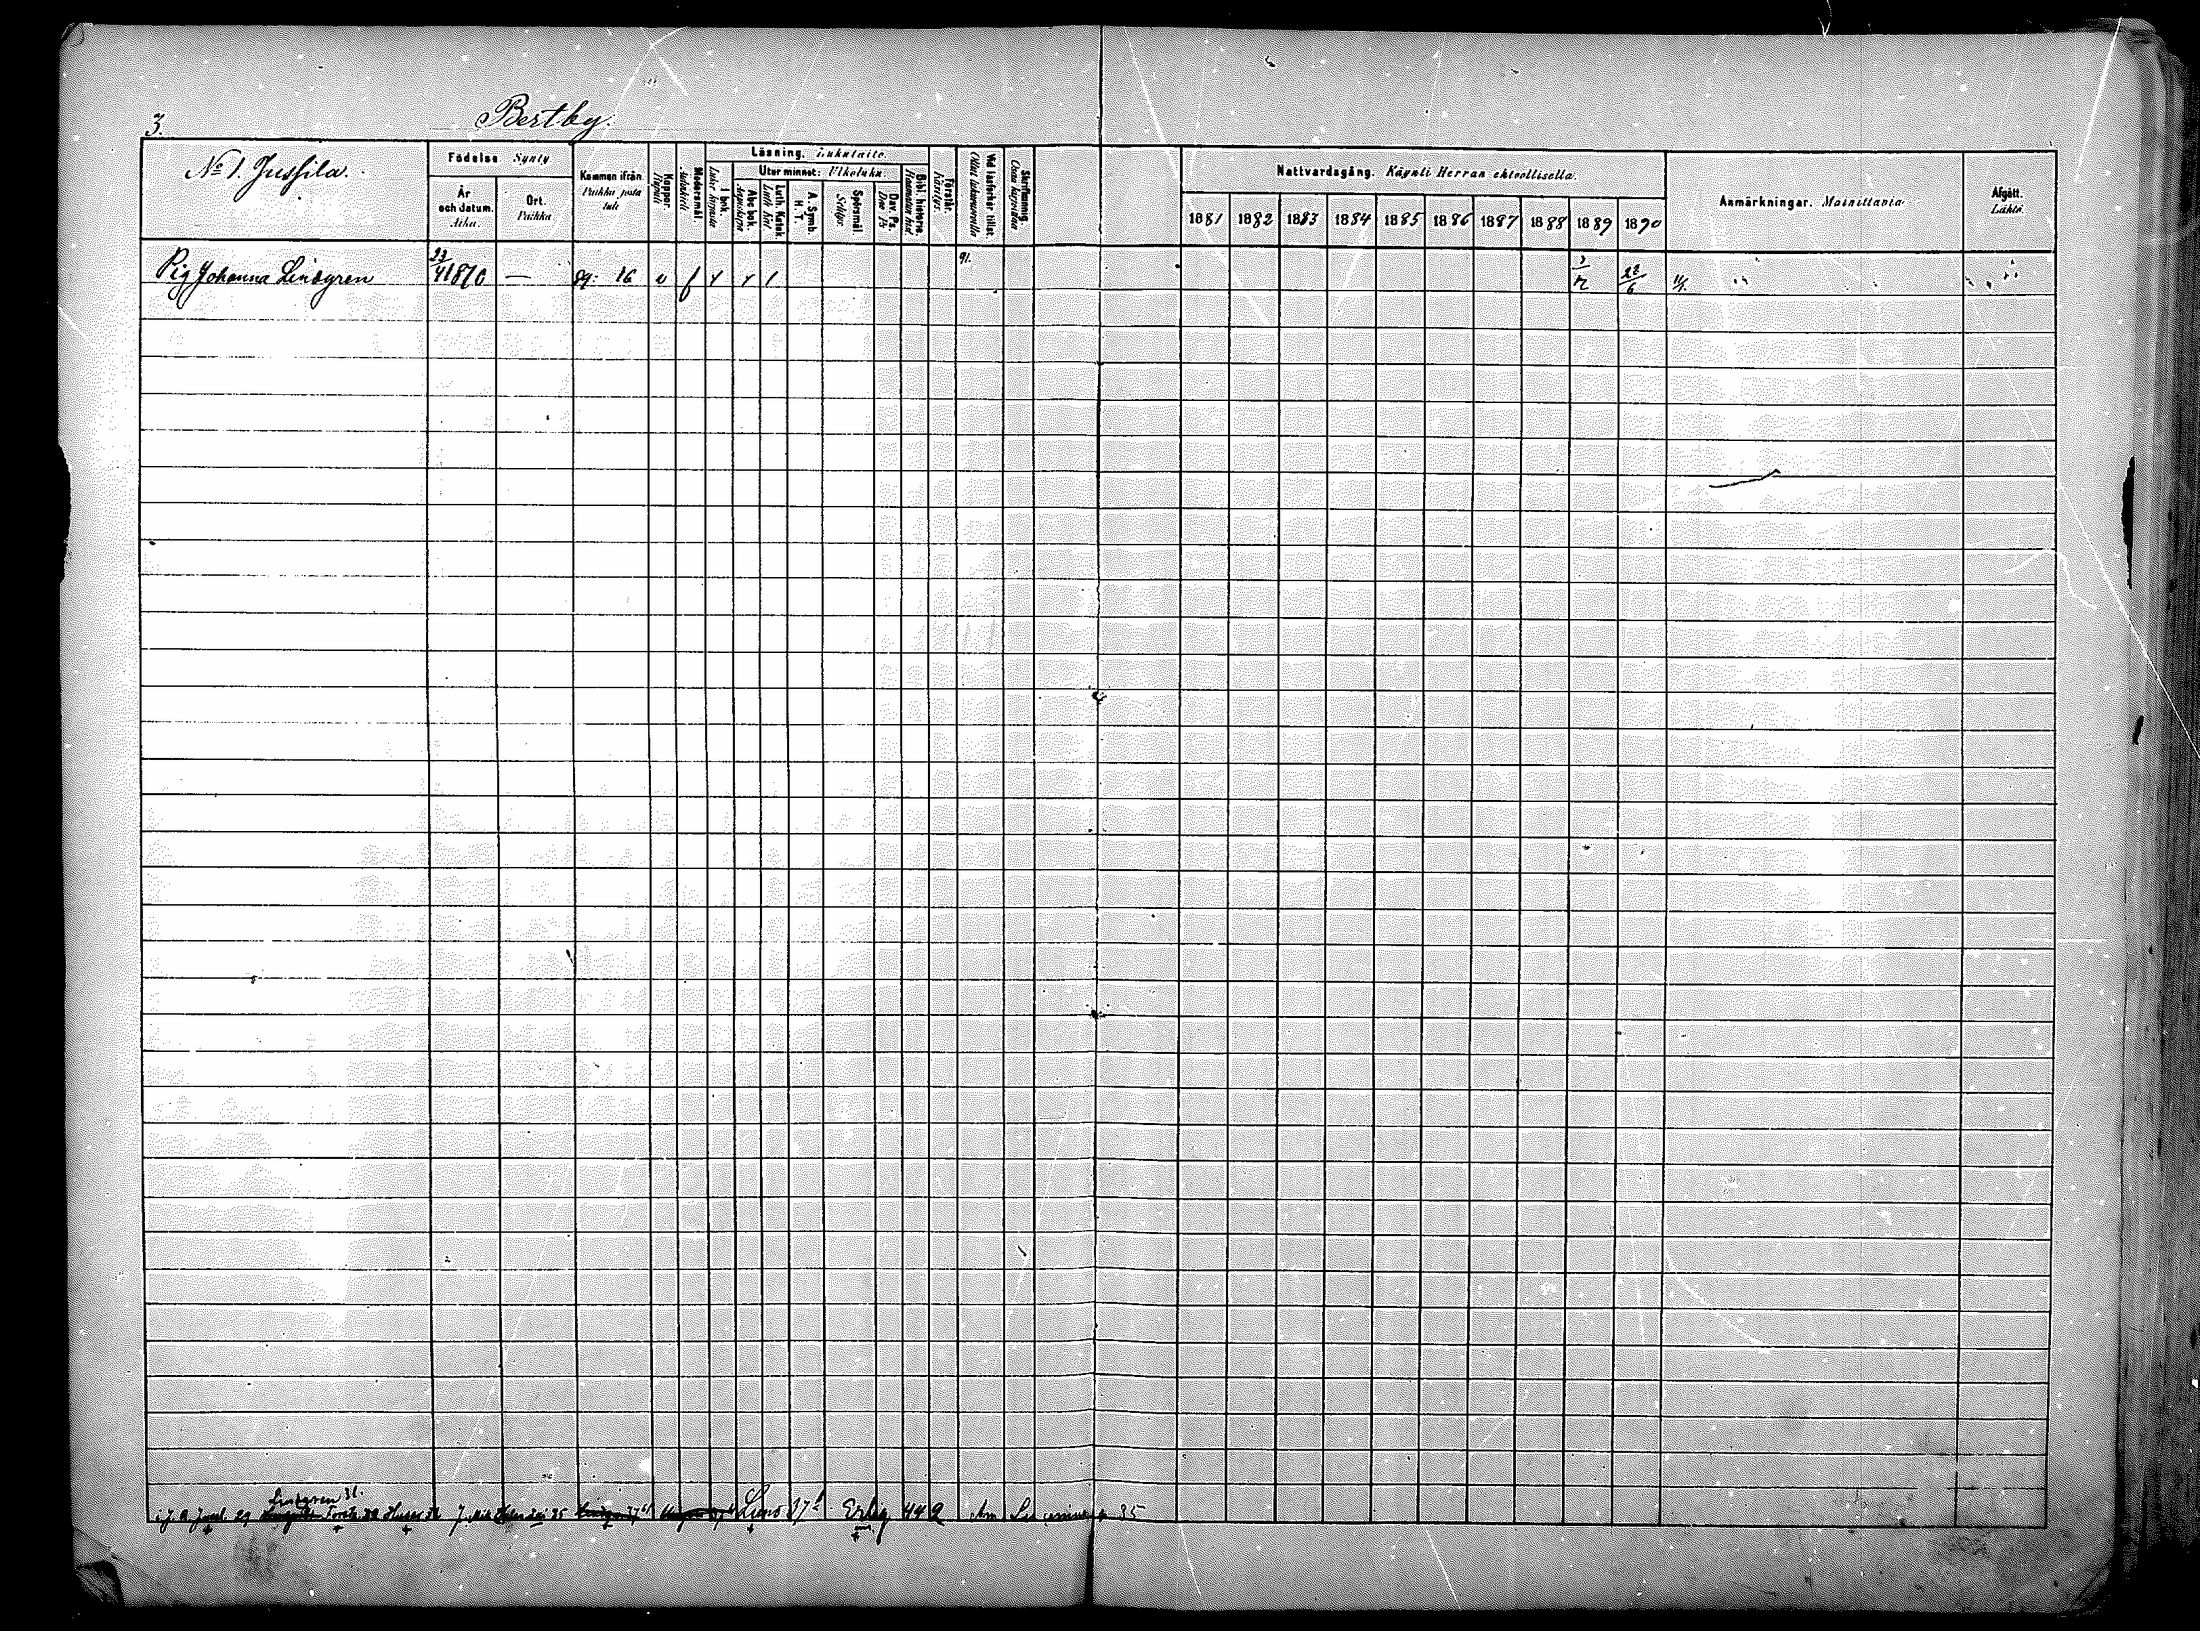 3.
Bertby.
No 1. Jussila.
Födelse Synty
År och datum. Aika.
Ort. Paikka
Kommen ifrån. Paikka josta tuli
Koppor. Rupuli
Modersmål. Äidinkieli
Läsning. Lukutaito.
I bok. Luku kirjasta
Utur minnet: Ulkoluku.
Abc bok. Aapiskirja
Luth. Katek. Luth. Kat.
A. Symb. H. T.
Spörsmål. Selitys.
Dav. Ps. Dav. Ps.
Bibl. historia.
Förstår. Käsitys.
Vid läsförhör tillst.
Skriftkunnig. Osaa kirjoittaa
Nattvardsgång. Käynti Herran ehtoollisella.
1881 1882 1883 1884 1885 1886 1887 1888 1889 1890
Anmärkningar. Mainittavia
Afgått. Lähtö.
Pig Johanna Lindgren 23/4 1870 — 89: 16 v f 91. 22/6
Lindgren 31.
29 Huser Luno 37 Erby 442 35